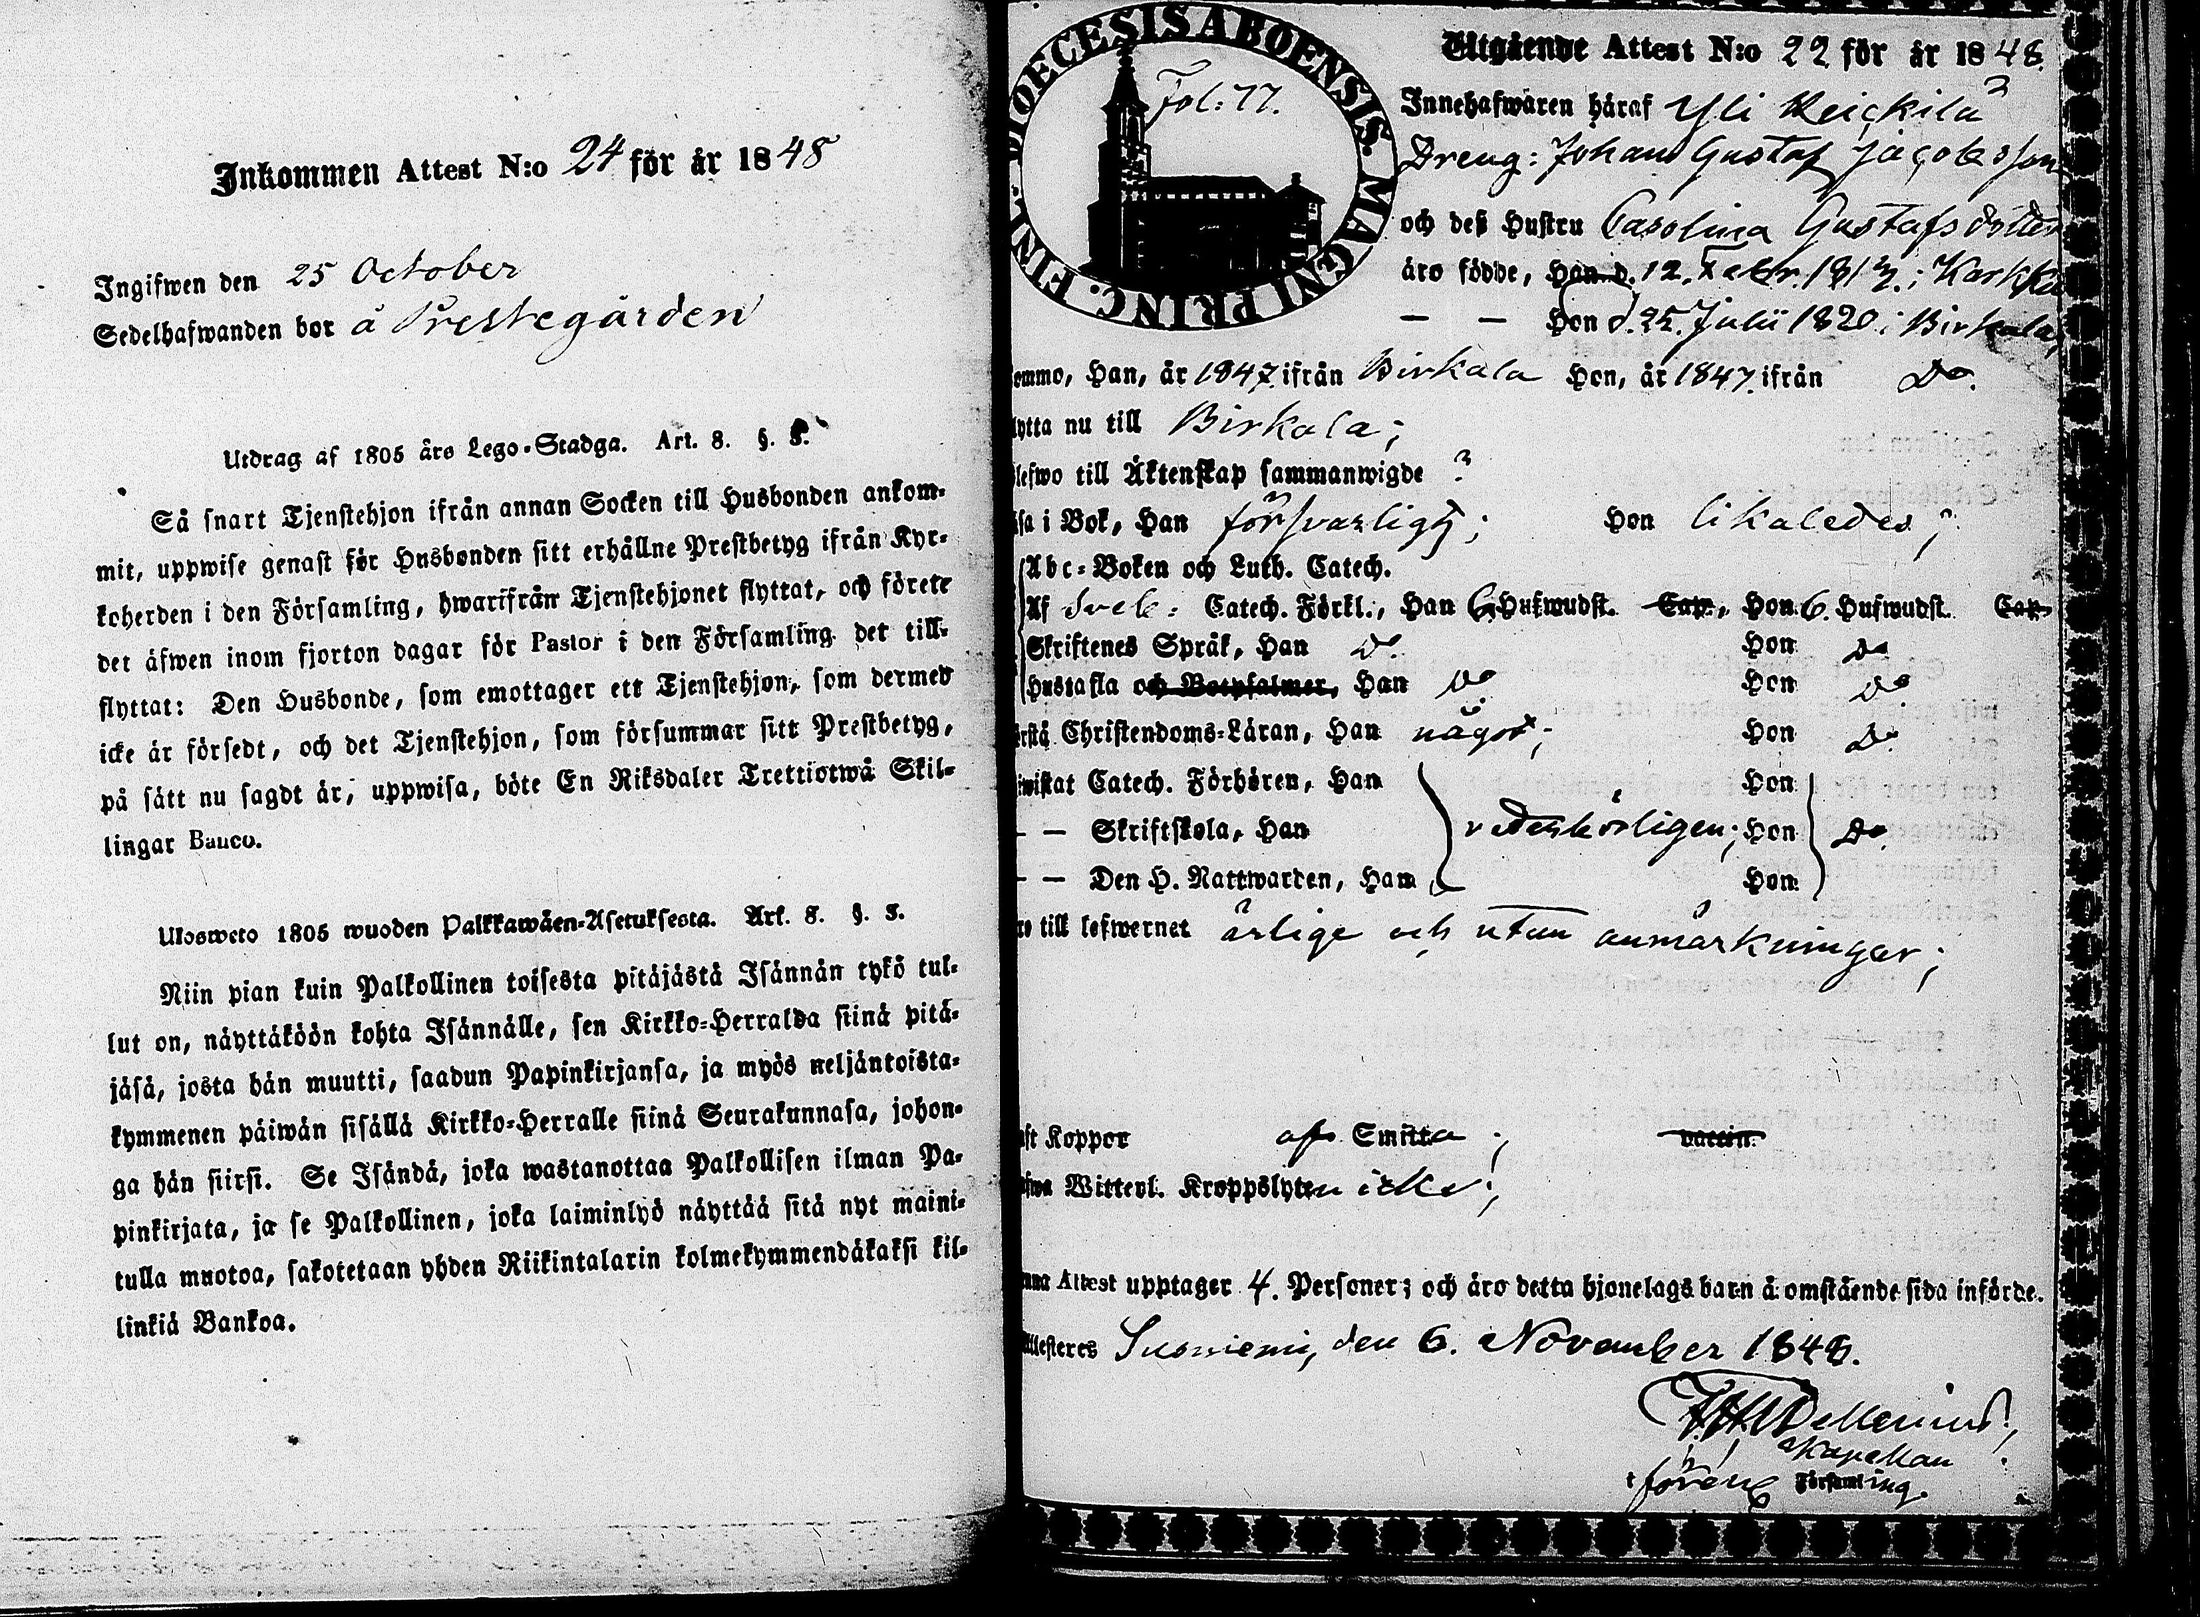 Inkommen Attest N:o 24 för år 1848
Ingifwen den 25 October
Sedelhafwanden bor å Prestegården
Utdrag af 1805 års Lego-Stadga. Art. 8. §. 3.
Så snart Tjenstehjon ifrån annan Socken till Husbonden ankom-
mit, uppwise genast för Husbonden sitt erhållne Prestbetyg ifrån Kyr-
koherden i den Församling, hwarifrån Tjenstehjonet flyttat, och förete
det äfwen inom fjorton dagar för Pastor i den Församling det till-
flyttat: Den Husbonde, som emottager ett Tjenstehjon, som dermed
icke är försedt, och det Tjenstehjon, som försummar sitt Prestbetyg,
på sätt nu sagdt är, uppwisa, böte En Riksdaler Trettiotwå Skil-
lingar Banco.
Ulosweto 1805 wuoden Palkkawäen-Asetuksesta. Art. 8. §. 3.
Niin pian kuin Palkollinen toisesta pitäjästä Isännän tykö tul-
lut on, näyttäköön kohta Isännälle, sen Kirkko-Herralda siinä pitä-
jäsä, josta hän muutti, saadun Papinkirjansa, ja myös neljäntoista-
kymmenen päiwän sisällä Kirkko-Herralle siinä Seurakunnasa, johon-
ga hän siirsi. Se Isändä, joka wastanottaa Palkollisen ilman Pa-
pinkirjata, ja se Palkollinen, joka laiminlyö näyttää sitä nyt maini-
tulla muotoa, sakotetaan yhden Riikintalarin kolmekymmendäkaksi kil-
linkiä Bankoa.
DIOECESIS ABOENSIS. MAGNI PRINC. FINL.
Fol: 77.
Utgående Attest N:o 22 för år 1848.
Innehafwaren häraf Yli Keickilä
Dreng: Johan Gustaf Jacobsson
och deß Hustru Carolina Gustafsdotter
äro födde, Han d. 12. Febr. 1813. i Karkku
— — Hon d. 25. Julii 1820 i Birkala,
omma, Han, år 1847 ifrån Birkala Hon, år 1847. ifrån Do.
lytta nu till Birkala;
blefwo till Äktenskap sammanwigde ?
äsa i Bok, Han förswarligt; Hon likaledes;
Abc-Boken och Luth. Catech.
Af Sveb: Catech. Förkl., Han 6 Hufwudst. Cap., Hon 6. Hufwudst. Cap.
Skriftenes Språk, Han Do. Hon Do
Hustafla och Botpsalmer, Han Do Hon Do
örstå Christendoms-Läran, Han något; Hon Do.
wistat Catech. Förhören, Han Hon
— — Skriftskola, Han vederbörligen; Hon Do.
— — Den H. Nattwarden, Han Hon
ro till lefwernet ärlige och utan anmärkningar;
aft Koppor af Smitta; vaccin.
afwa Witterl. Kroppslyten icke;
nna Attest upptager 4. Personer; och äro detta hjonelags barn å omstående sida införde.
ttesteres Suoniemi, den 6. November 1848.
Kapellan
Församling.